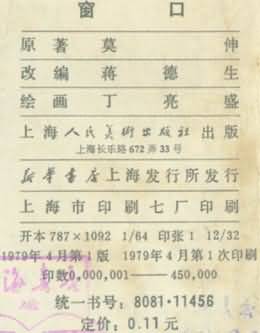 窗 口
原著 莫 伸
改编 蒋 德 生
绘画 丁 亮 盛
上海人民美術出版社出版
上海长乐路672弄33号
新华書店上海发行所发行
上海市印刷七厂印刷
开本787×1092 1/64 印张1 12/32
1979年4月第1版 1979年4月第1次印刷
印数0,000,001——450,000
统一书号：8081·11456
定价：0.11元